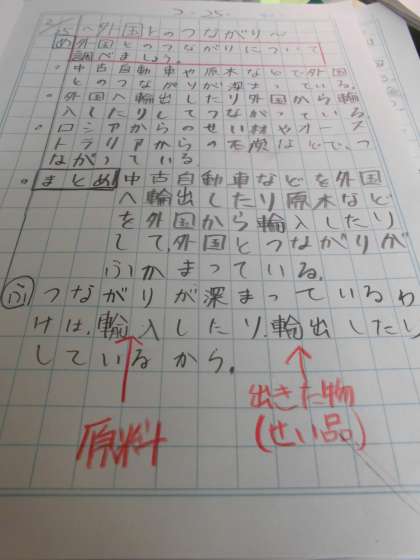 2/25 〜外国とのつながり〜
め 外国とのつながりについて
調べましょう。
・中古自動車や原木などで外国
とのつながりが深まっている。
・外国へ輸出したり外国から輸
入したりしてつながっている。
・ロシアからのせい材やオース
トラリアからの石炭などで、つ
ながっている。
・まとめ 中古自動車などを外国
へ輸出したり原木など
を外国から輸入したり
して、外国とつながりが
ふかまっている。
ふ つながりが深まっているわ
けは、輸入したり、輸出したり
しているから。
原料
出きた物
(せい品)